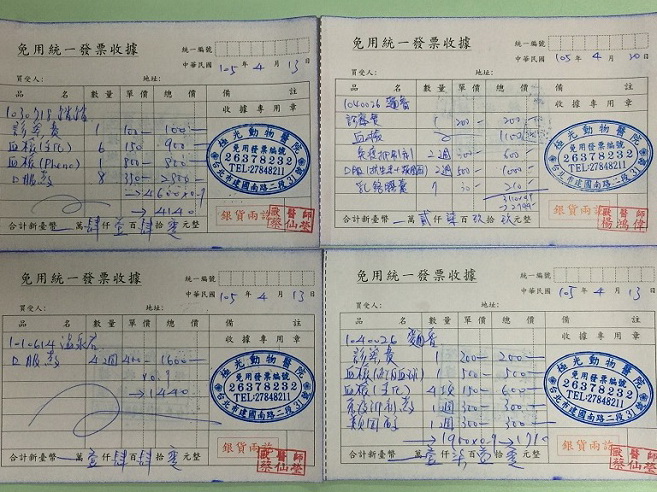 免用統一發票收據
統一編號
中華民國 105 年 4 月 13 日
買受人： 地址：
品 名 數量 單價 總價 備 註
收據專用章
診察費 1 100- 100-
血檢(生化) 6 150 900-
血檢(Pheno) 1 800- 800-
口服藥 8 350- 2800-
→4600×0.9
→4140
極光動物醫院
免用發票編號
26378232
TEL:27848211
台北市建國南路二段31號
銀貨兩訖
合計新臺幣 萬肆仟壹百肆拾零元整
免用統一發票收據
統一編號
中華民國 105 年 4 月 30 日
買受人： 地址：
品 名 數量 單價 總價 備 註
收據專用章
1040026
診察費 1 200- 200-
血檢 1100-
免疫抑制劑 2週 300- 600-
2週 500- 1000-
乳鐵膠囊 7 30-
極光動物醫院
免用發票編號
26378232
TEL:27848211
台北市建國南路二段31號
銀貨兩訖
醫師
楊鴻偉
合計新臺幣 萬貳仟柒百玖拾玖元整
免用統一發票收據
統一編號
中華民國 105 年 4 月 13 日
買受人： 地址：
品 名 數量 單價 總價 備 註
收據專用章
口服藥 4週 400- 1600-
×0.9
→1440
極光動物醫院
免用發票編號
26378232
TEL:27848211
台北市建國南路二段31號
銀貨兩訖
合計新臺幣 萬壹仟肆百肆拾零元整
免用統一發票收據
統一編號
中華民國 105 年 4 月 13 日
買受人： 地址：
品 名 數量 單價 總價 備 註
收據專用章
1040026
診察費 1 200- 200-
1 500- 500-
血檢(生化) 4項 150- 600-
1週 300- 300-
類固醇 1週 300- 300-
→1900×0.9→1710
極光動物醫院
免用發票編號
26378232
TEL:27848211
台北市建國南路二段31號
銀貨兩訖
合計新臺幣 萬壹仟柒百壹拾零元整